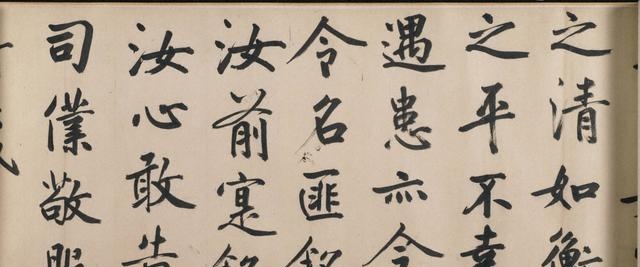 之清如衡
之平不幸
遇患亦令
令名匪銘
汝前寔銘
汝心敢告
司僕敬